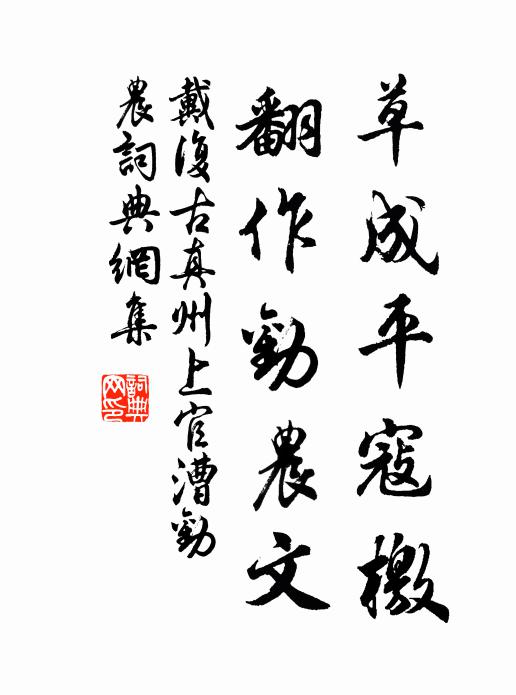 草成平寇檄
翻作勸農文
戴復古真州上官漕勸
農詞典網集
詞典
网印